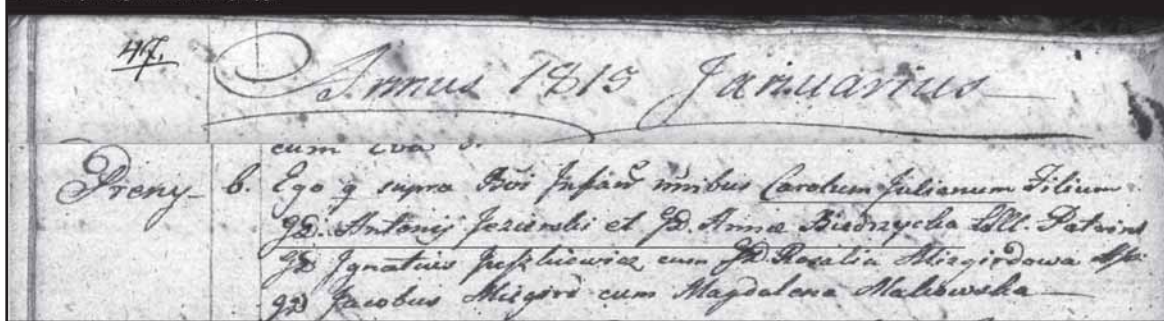 47.
Annus 1815 Januarius
cum Eva
Preny 6. Ego q supra Bvi Infan nnibus Carolum Julianum Filium
GD. Antonij Jezierski et GD. Anna Biedrzycka LCC. Patrini
GD Ignatius Juszkiewicz cum GD Rosalia Miegirdowa
GD Jacobus Miegird cum Magdalena Malkowska